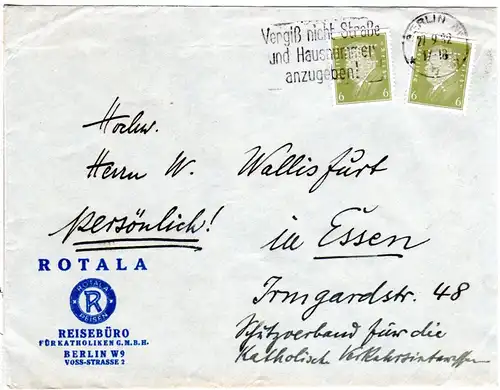 Vergiß nicht Straße
und Hausnummer
anzugeben!
BERLIN
6 6
6 6
Hochw.
Herrn W. Wallisfurt
persönlich!
in Essen
Irmgardstr. 48
Schutzverband für die
Katholisch Verkehrsinteressen
ROTALA
ROTALA
R
REISEN
REISEBÜRO
FÜR KATHOLIKEN G.M.B.H.
BERLIN W9
VOSS-STRASSE 2